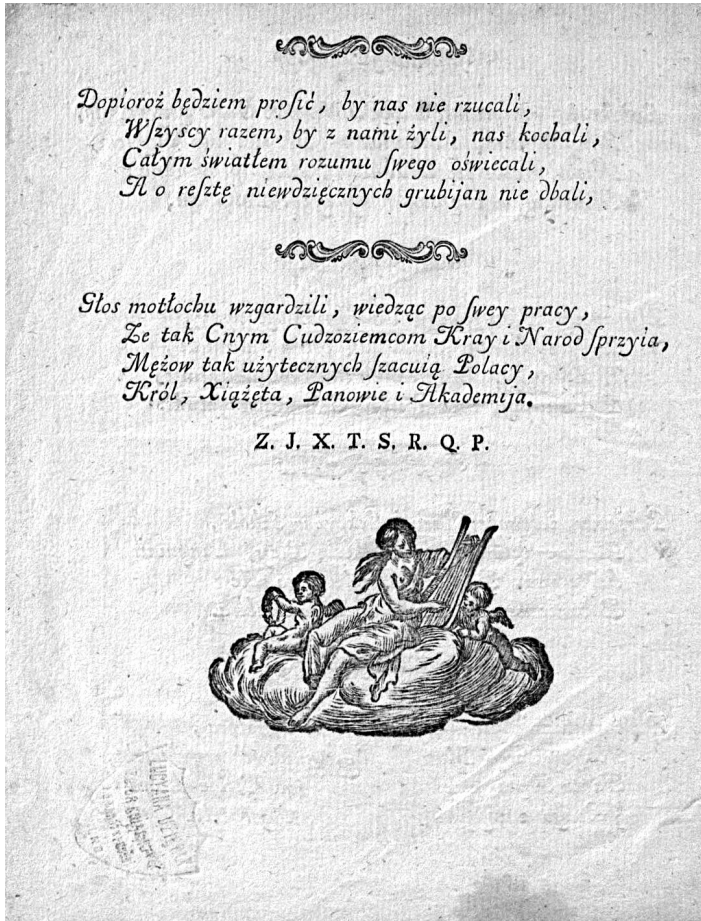 Dopioroż będziem prosić, by nas nie rzucali,
Wſzyscy razem, by z nami żyli, nas kochali,
Całym światłem rozumu ſwego oświecali,
A o reſztę niewdzięcznych grubijan nie dbali,
Głos motłochu wzgardzili, wiedząc po ſwey pracy,
Ze tak Cnym Cudzoziemcom Kray i Narod ſprzyia,
Mężow tak użytecznych ſzacuią Polacy,
Król, Xiążęta, Panowie i Akademija.
Z. J. X. T. S. R. Q. P.